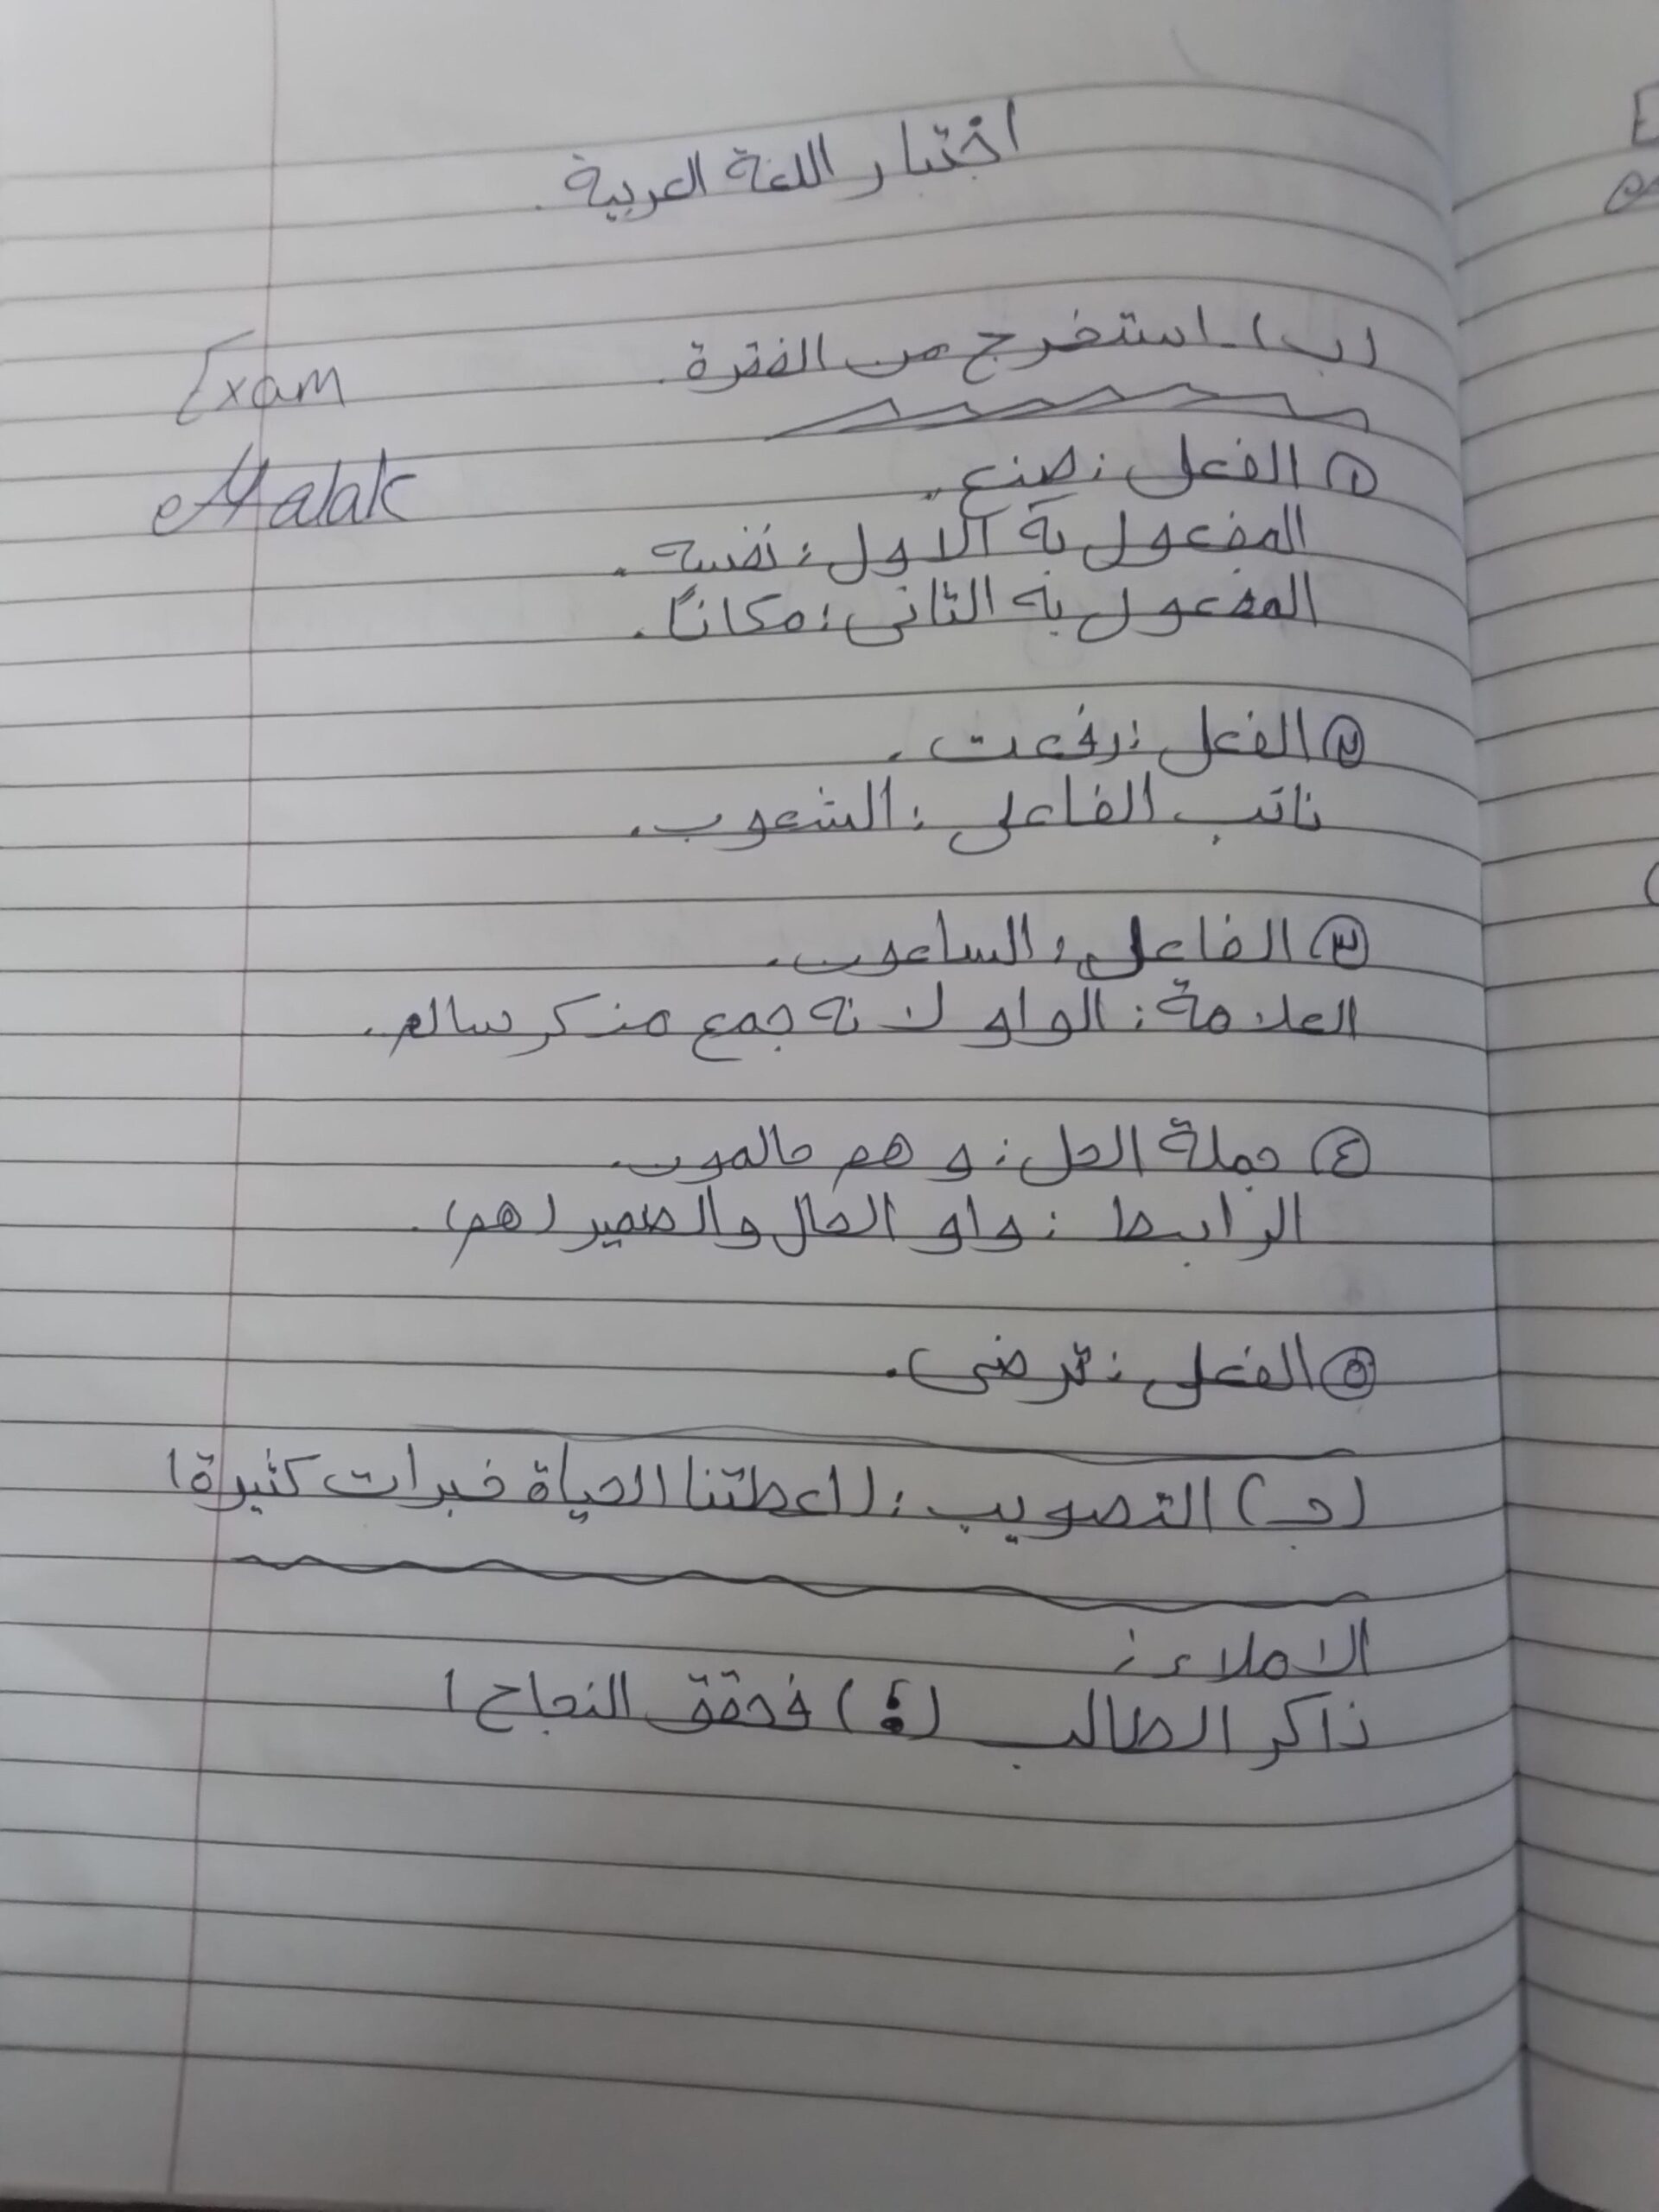 اختبار اللغة العربية.
(ب) استخرج من الفقرة.
Exam
Malak
① الفعل: صنع.
المفعول به الاول: نفسه.
المفعول به الثانى: مكاناً.
② الفعل: رفعت.
نائب الفاعل: الشعوب.
③ الفاعل: الساعون.
العلامة: الواو لانه جمع مذكر سالم.
④ جملة الحل: و هم حالمون.
الرابط: واو الحال والضمير (هم).
⑤ الفعل: ترضى.
(جـ) التصويب: (اعطتنا الحياة خبرات كثيرة)
الاملاء:
ذاكر الطالب (؛) فحقق النجاح ا